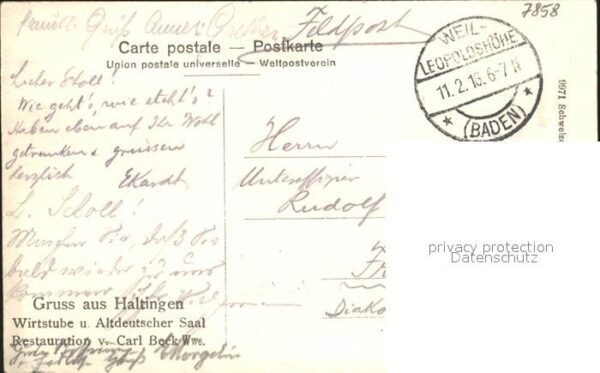 7858
Gruss Feldpost
Carte postale — Postkarte
Union postale universelle — Weltpostverein
WEIL-
LEOPOLDSHÖHE
11.2.16.6-7N
* (BADEN) *
9971 Schweiz
Lieber Scholl!
Wie geht's, wie steht's?
Haben eben auf Ihr Wohl
getrunken & grüssen
herzlich Ekardt
L. Scholl!
Sie, daß Sie
bald wieder zu uns
kommen
Herrn
Unteroffizier
Rudolf
Fr
Diako
privacy protection
Datenschutz
Gruss aus Haltingen
Wirtstube u. Altdeutscher Saal
Restauration v. Carl Beck Wwe.